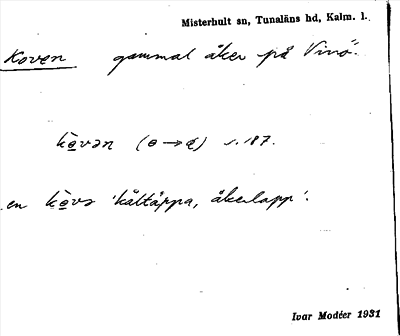 Misterhult sn, Tunaläns hd, Kalm. l.
Koven gammal åker på Vinö.
kòvən (o → ) s. 187.
en kòvə 'kåltäppa, åkerlapp'.
Ivar Modéer 1931